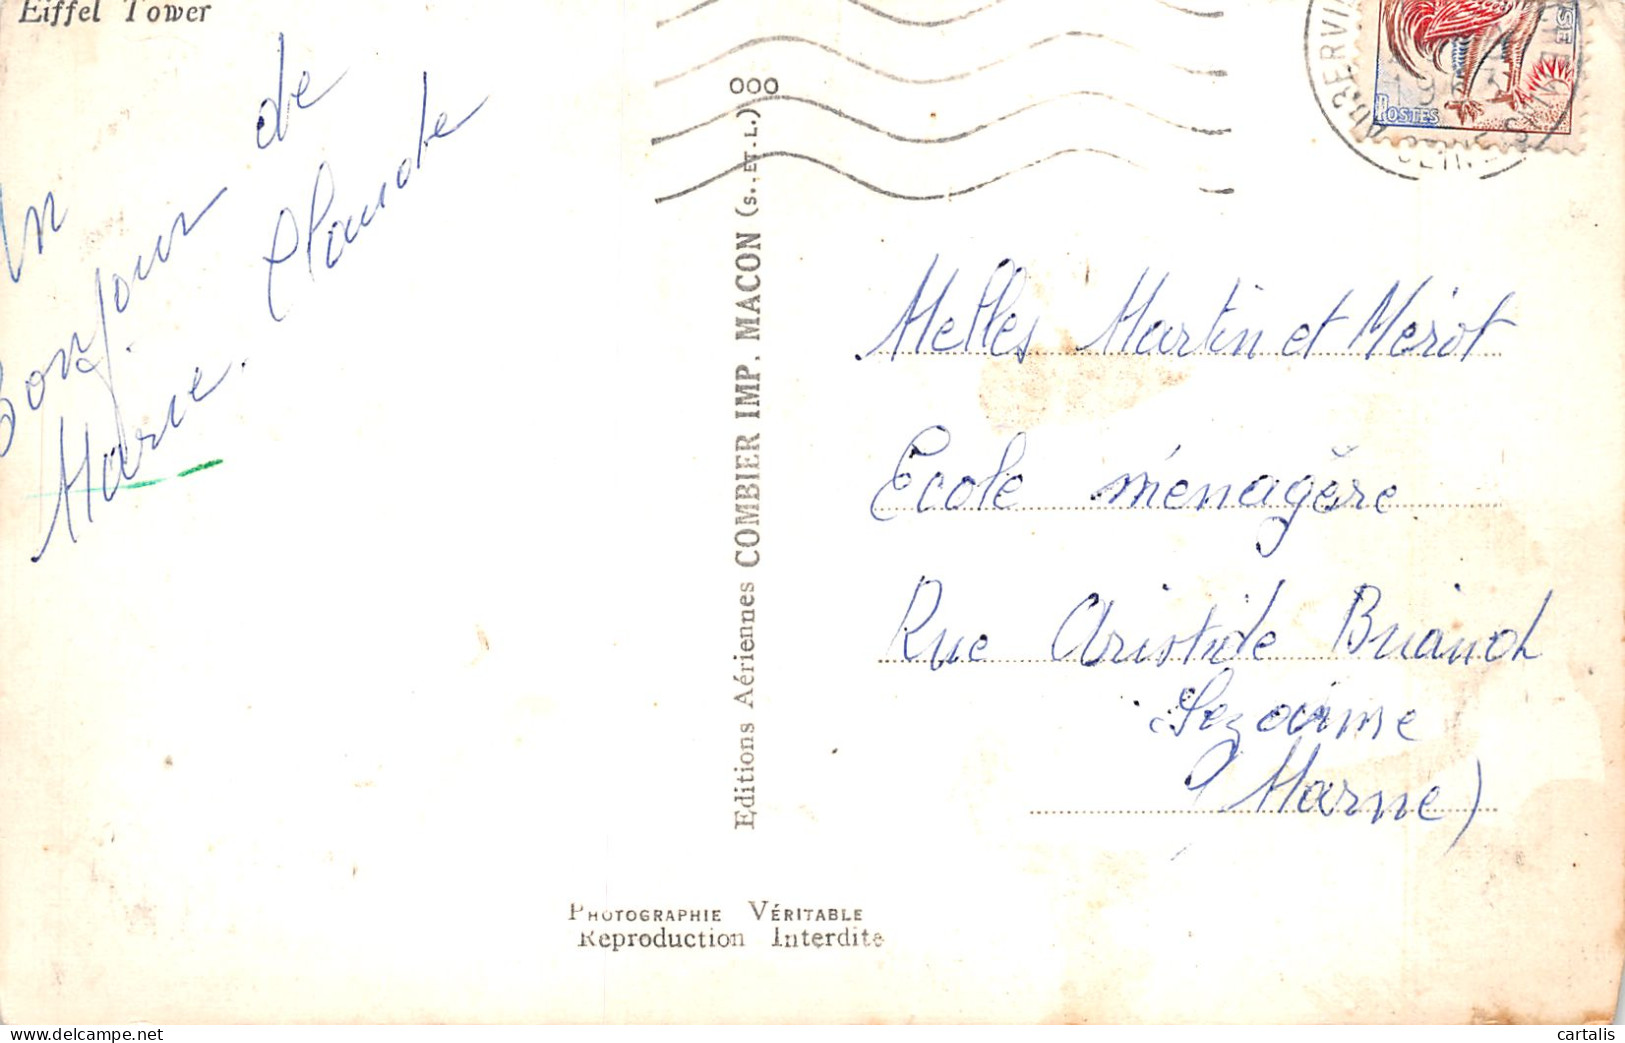 Eiffel Tower
Un
Bonjour de
Marie. Claude
Editions Aériennes COMBIER IMP. MACON (S.-ET-L.) 000
POSTES
Melles Martin et Mérot
Ecole ménagère
Rue Aristide Briand
Sezanne
(Marne)
PHOTOGRAPHIE VÉRITABLE
Reproduction Interdite
cartalis